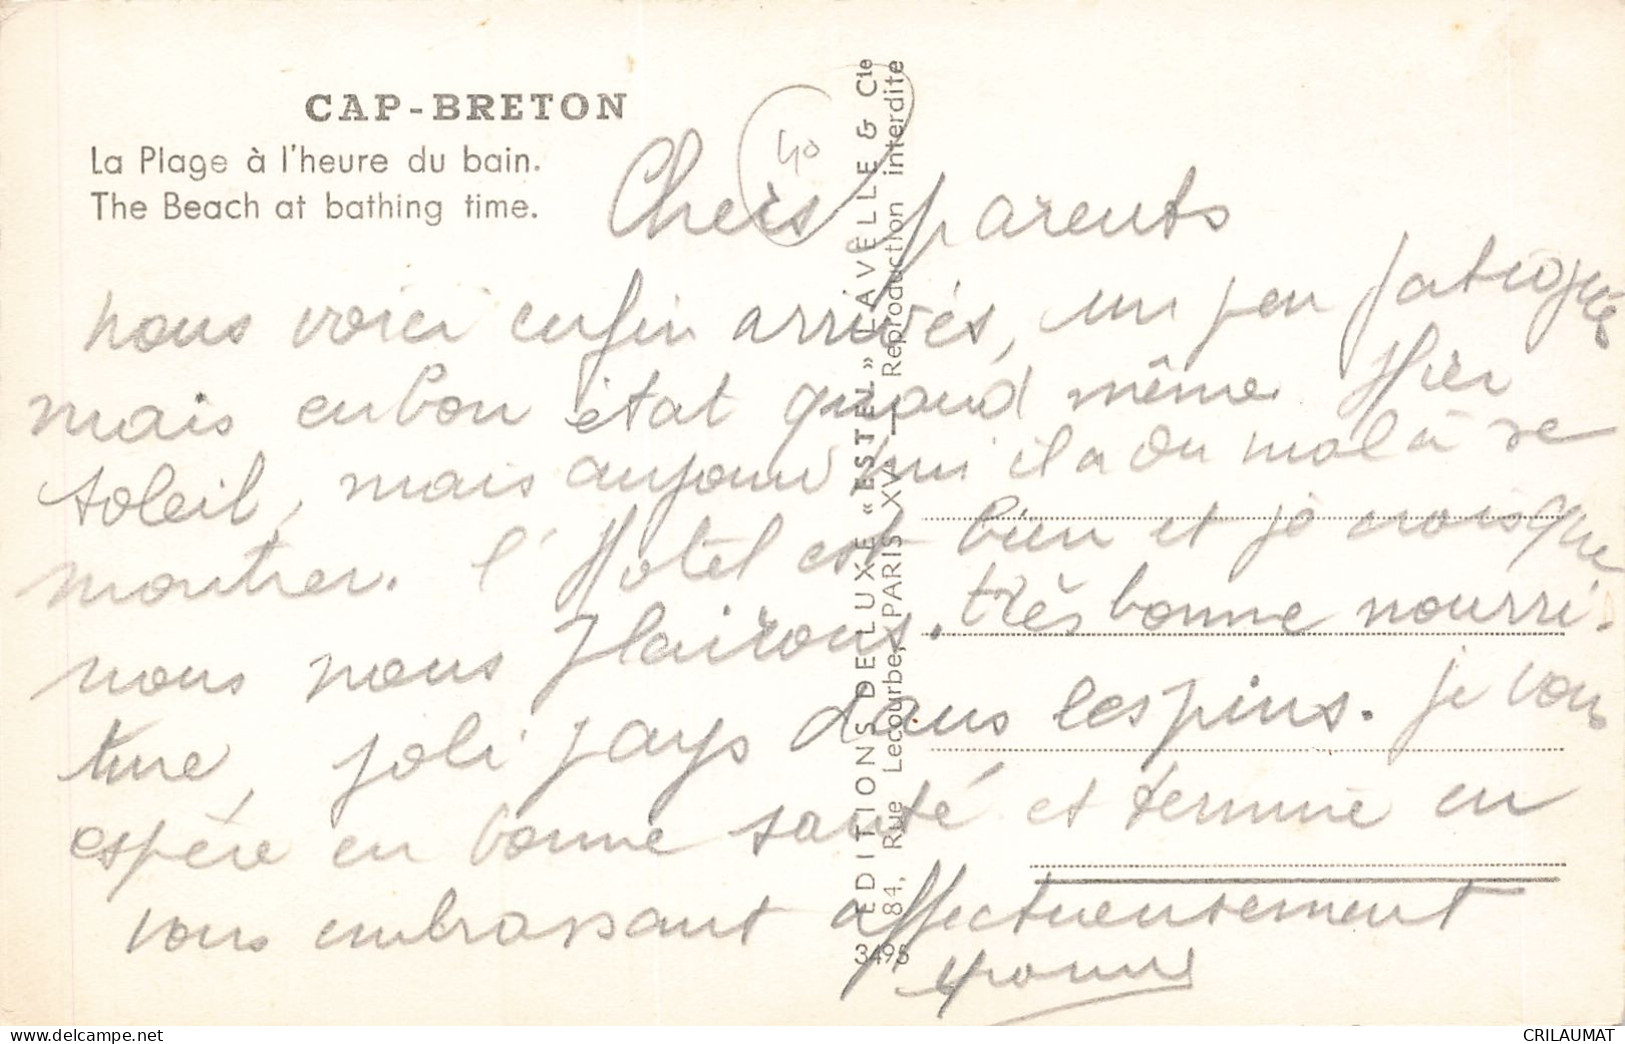 CAP-BRETON
La Plage à l'heure du bain.
The Beach at bathing time.
40
Chers parents
nous voici enfin arrivés, un peu fatigués
mais en bon état quand même. Hier
soleil, mais aujourd'hui il a du mal à se
montrer. l'Hotel est bien et je crois que
nous nous plairons. très bonne nourri-
ture, joli pays dans les pins. je vous
espère en bonne santé et termine en
vous embrassant affectueusement
Yvonne
EDITIONS DE LUXE « ESTEL » LAVELLE & Cie
84, Rue Lecourbe, PARIS XV — Reproduction interdite
3495
www.delcampe.net
CRILAUMAT